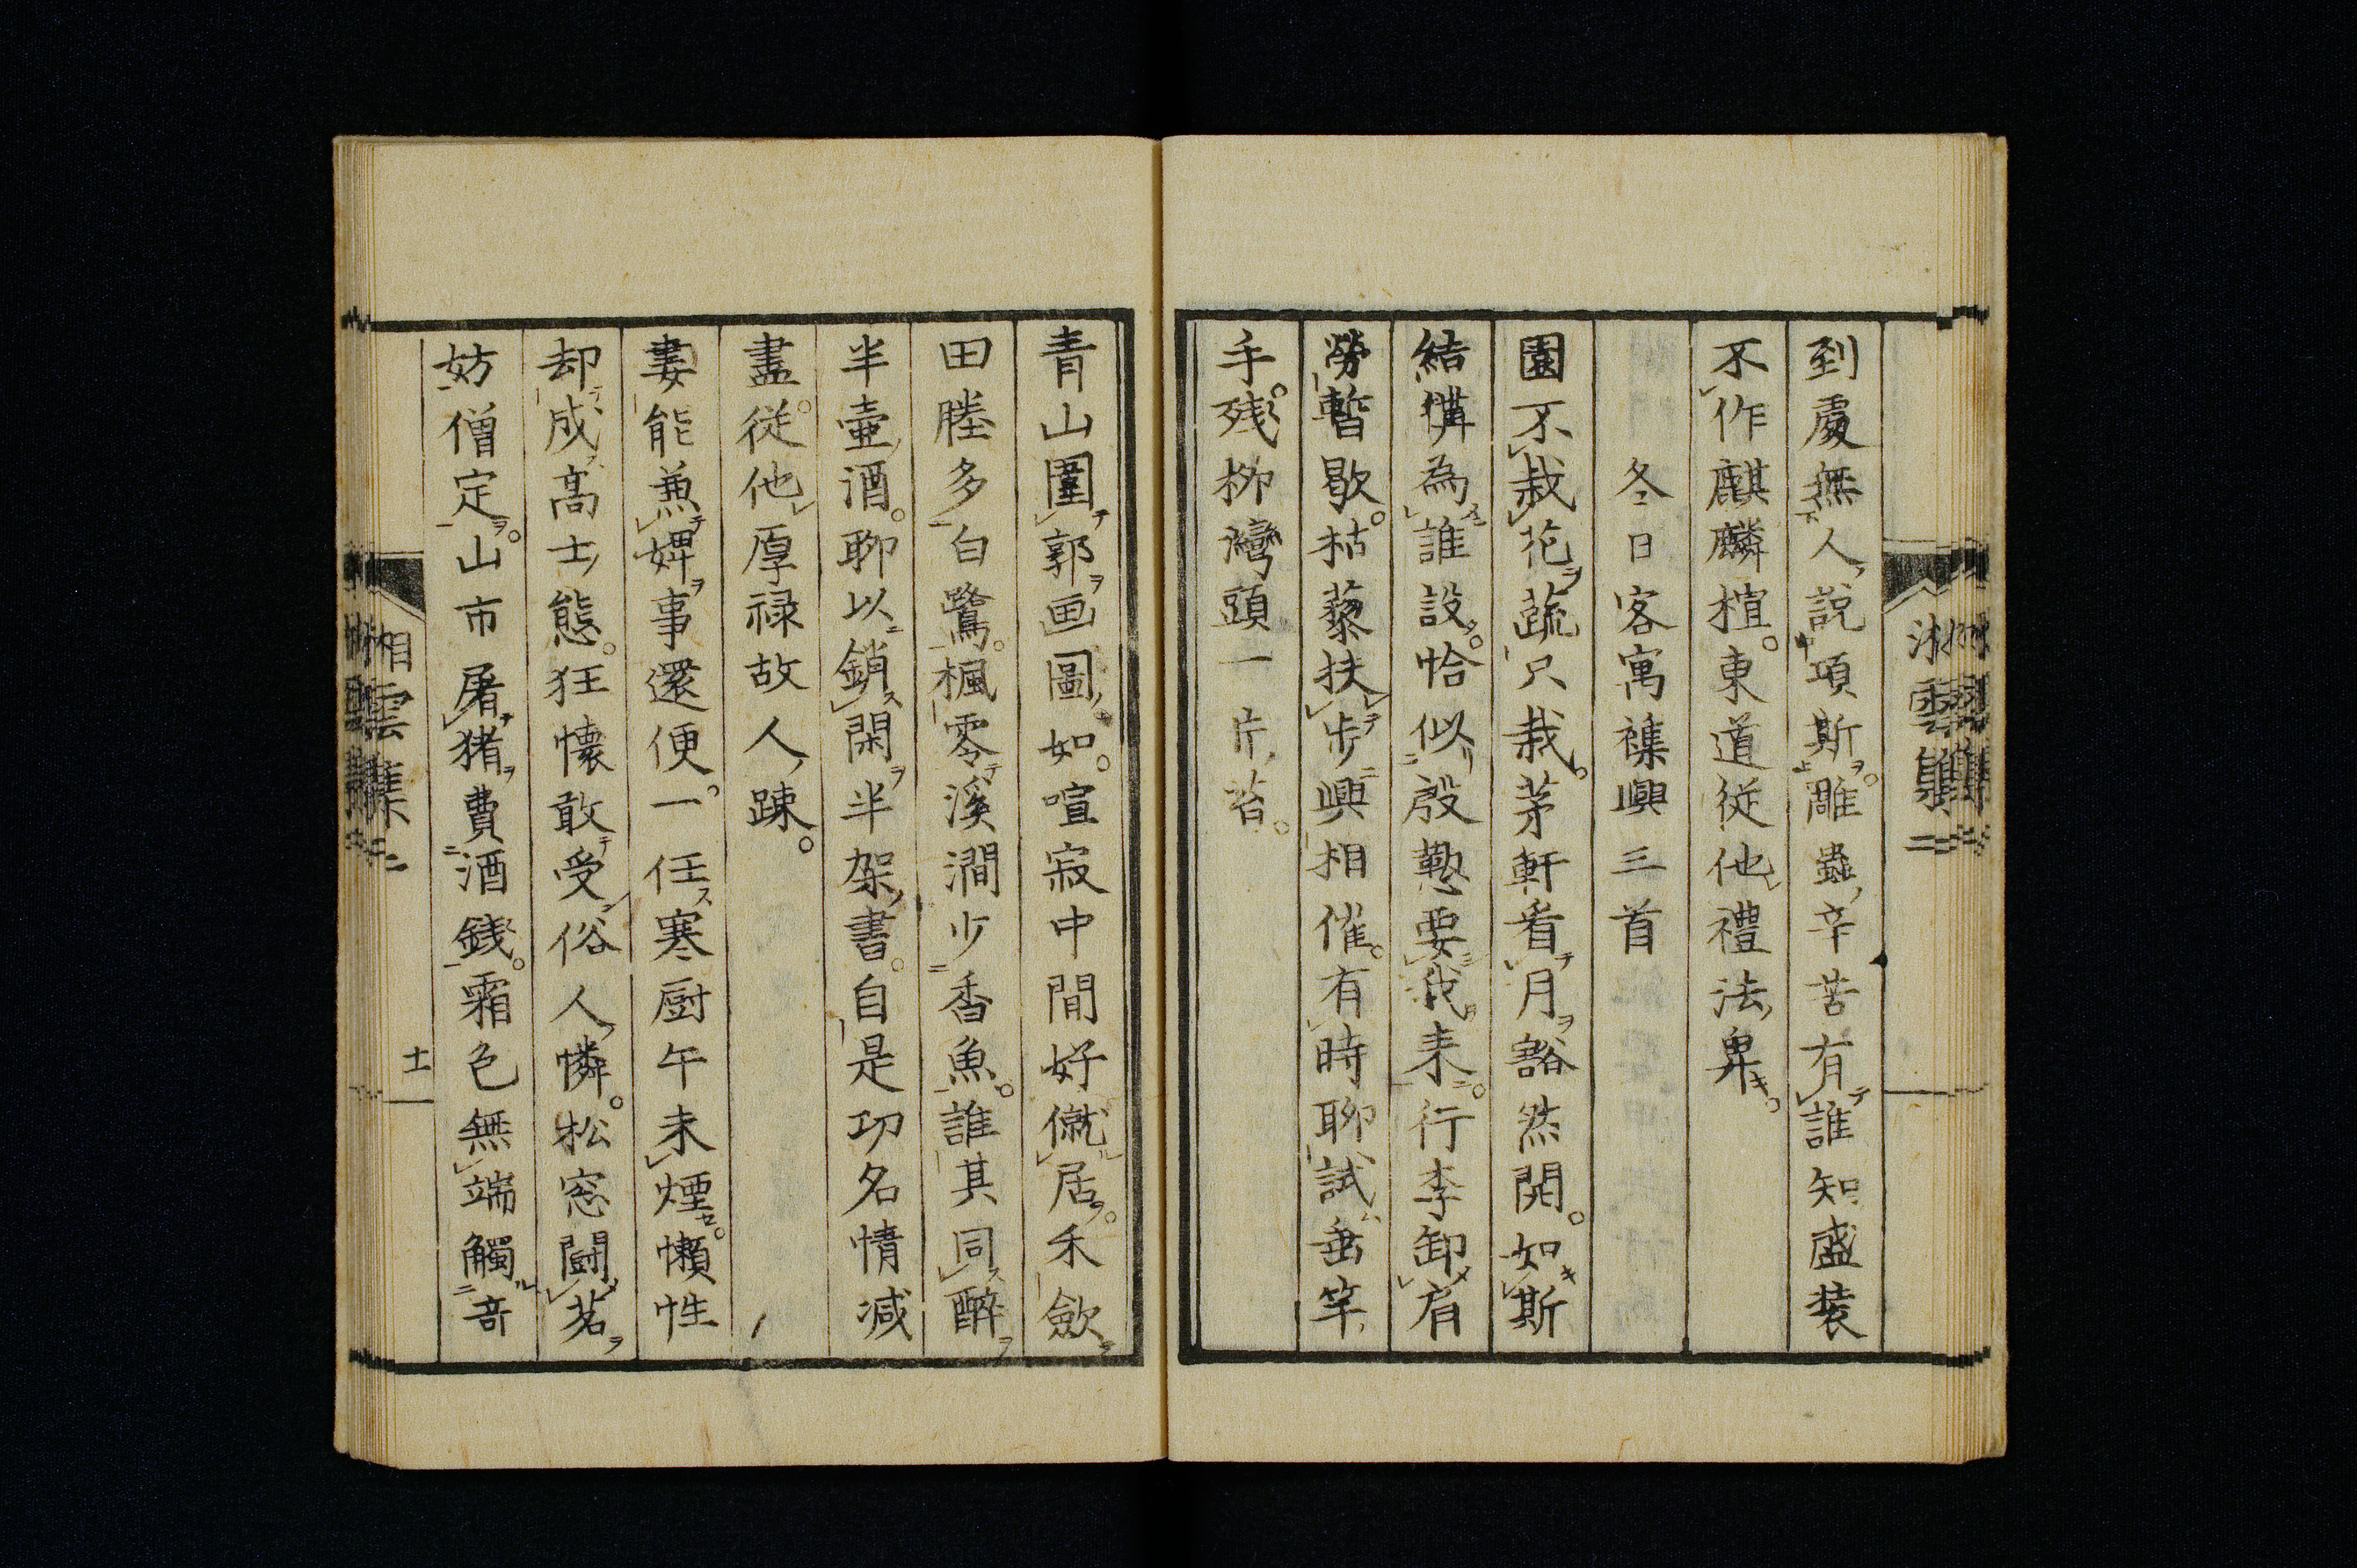 到處無人說項斯。雕蟲辛苦有誰知盛装
不作麒麟楦。東道従他禮法卑。
冬日客寓襍興三首
園不栽花蔬只栽。茅軒看月豁然開。如斯
結構為誰設。恰似殷懃要我来。行李卸肩
勞暫歇。枯藜扶步興相催。有時聊試垂竿
手。残柳灣頭一片苔。
青山圍郭画圖如。喧寂中間好僦居。禾歛
田塍多白鷺。楓零溪澗少香魚。誰其同醉
半壷酒。聊以銷閑半架書。自是功名情减
盡。従他厚禄故人踈。
妻能兼婢事還便。一任寒厨午未煙。懶性
却成高士態。狂懐敢受俗人憐。松窓鬪茗
妨僧定。山市屠猪費酒錢。霜色無端觸奇
湘雲集二
十一